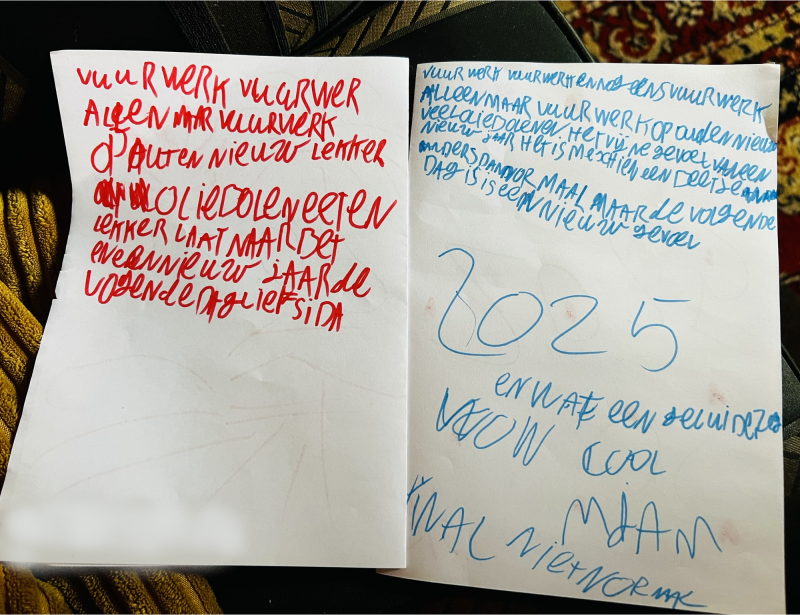 VUURWERK VUURWER
ALLEEN MAR VUURWERK
OP AUTEN NIEUW LEKKER
OLIEBOLEN EETEN
LEKKER LAAT NAAR BET
EN EEN NIEUW JAAR de
VOGENDE DAG LIEFS IDA
VUURWERK VUURWERK EN NOG EENS VUURWERK
ALLEEN MAAR VUURWERK OP OUDEN NIEUW
VEEL OLIEBOLEN EN HET VIJNE GEVOEL VAN EEN
NIEUW JAAR HET IS MISCHIEN EEN BEETJE
ANDERS DAN VOOR MAAL MAAR de VOLGENDE
DAG IS IS EEN NIEUW GEVOEL
2025
EN WAT EEN GELUIDE
WOW COOL
MJAM
KNAL NIET NORMAAL